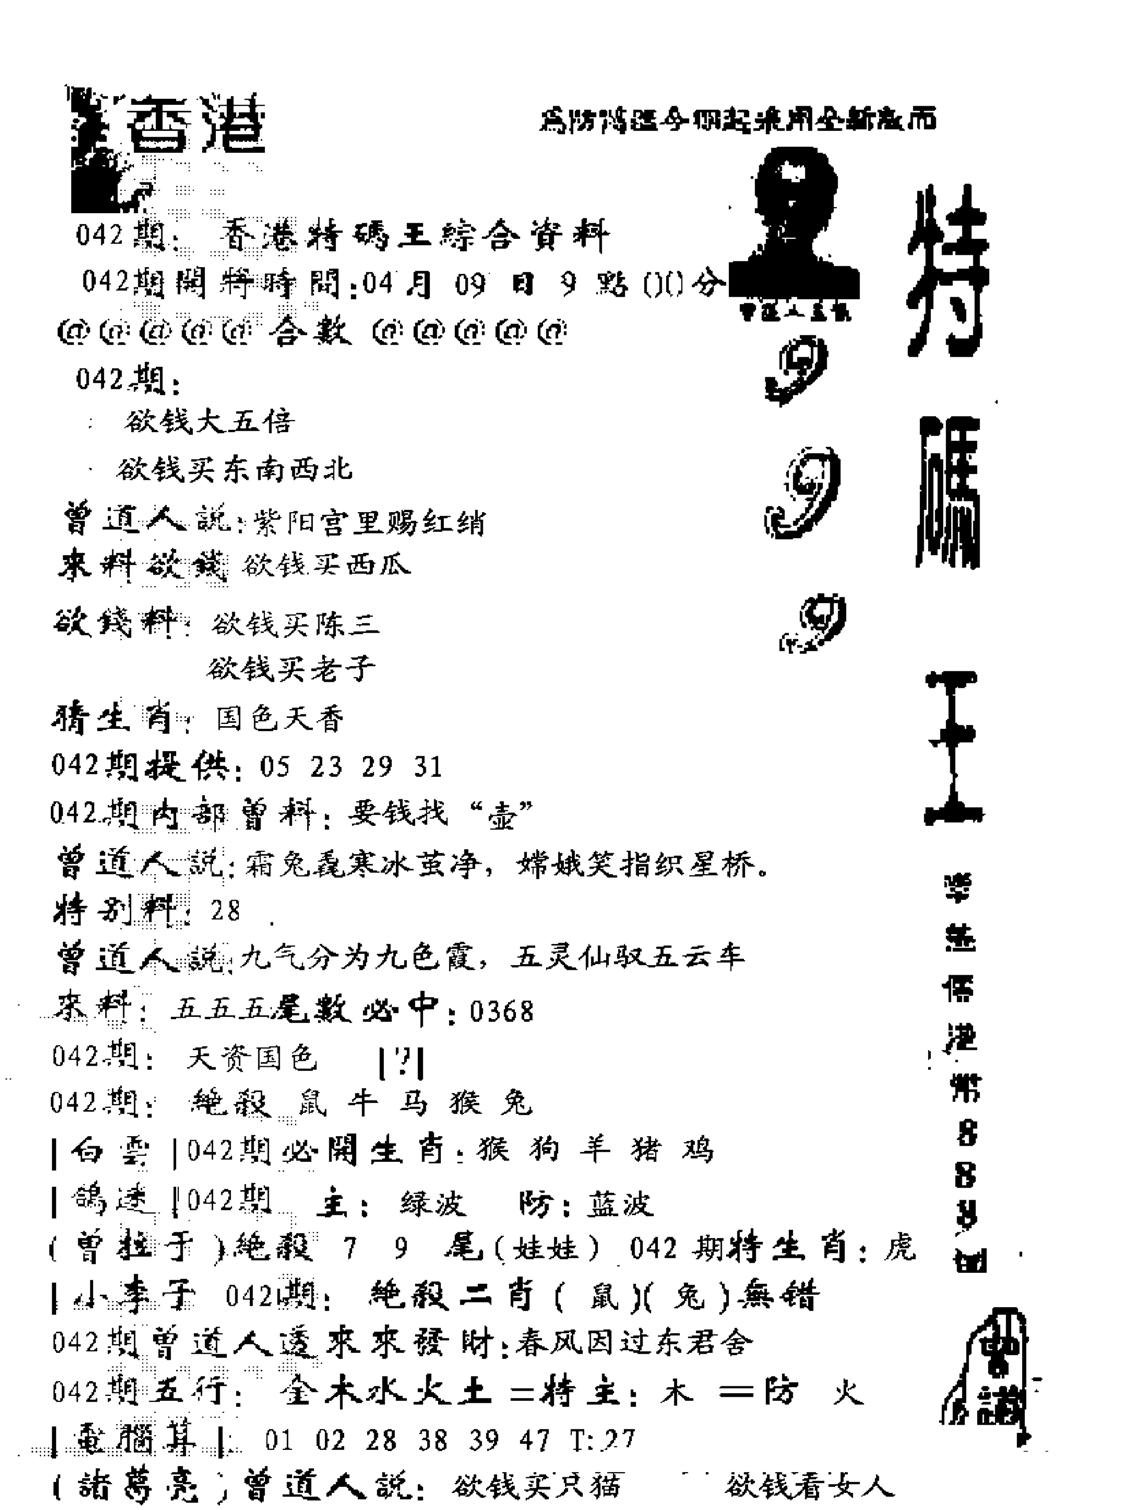 香港
爲防 今期起采用全新版面
042期: 香港特碼王綜合資料
042期開將時間:04月 09 日 9 點()()分
@@@@@ 合數 @@@@@
042期:
欲钱大五倍
欲钱买东南西北
曾道人説:紫阳宫里赐红绡
來料欲錢 欲钱买西瓜
欲錢料: 欲钱买陈三
欲钱买老子
猜生肖: 国色天香
042期提供: 05 23 29 31
042期内部曾料: 要钱找“壶”
曾道人説:霜兔毳寒冰茧净,嫦娥笑指织星桥。
特别料: 28
曾道人説:九气分为九色霞,五灵仙驭五云车
來料: 五五五尾數必中:0368
042期: 天资国色 |?|
042期: 絶殺 鼠 牛 马 猴 兔
|白雲|042期必開生肖:猴 狗 羊 猪 鸡
|鴿迷|042期 主: 绿波 防: 蓝波
(曾拉于)絶殺 7 9 尾(娃娃) 042 期特生肖: 虎
|小李子 042期: 絶殺二肖( 鼠)( 兔)無错
042期曾道人透來來發財:春风因过东君舍
042期五行: 金木水火土=特主: 木 =防 火
|電腦算|: 01 02 28 38 39 47 T:27
(諸葛亮)曾道人説: 欲钱买只猫 欲钱看女人
特
碼
王
999
港
8
8
8